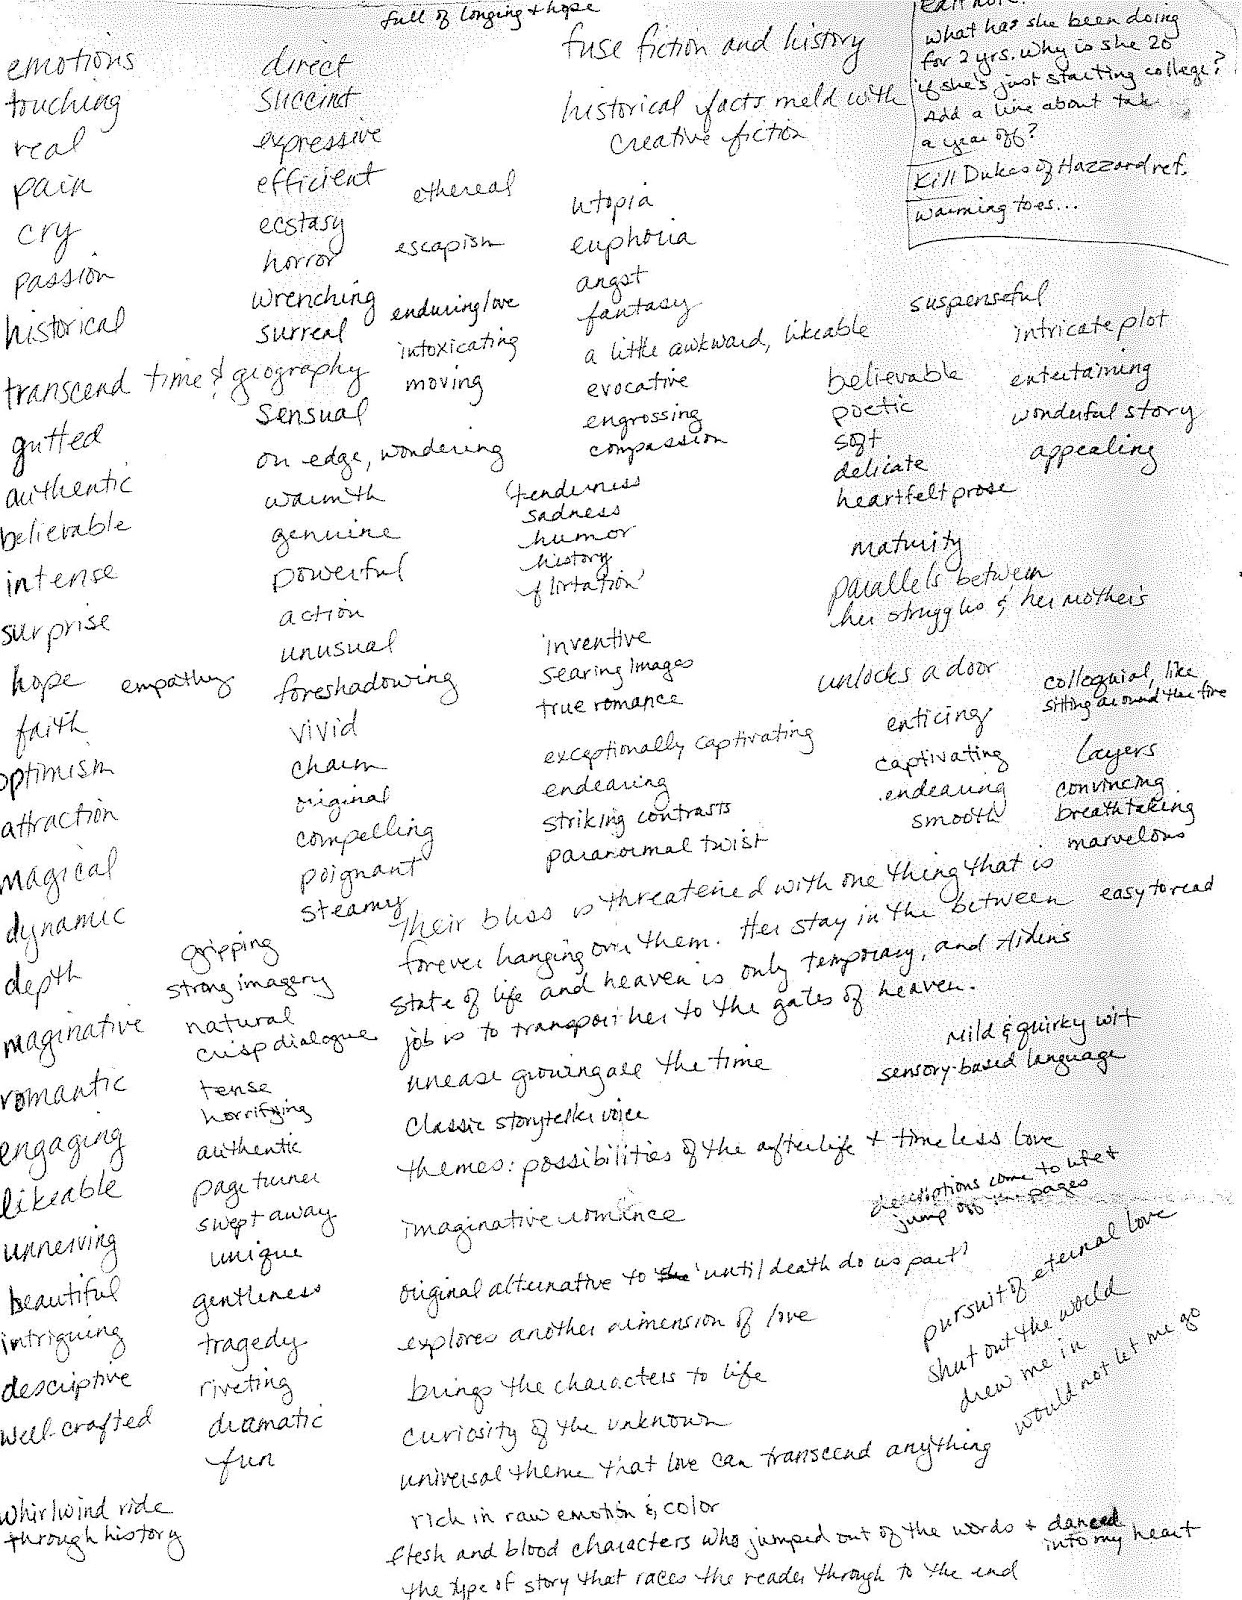 full of longing + hope
emotions
touching
real
pain
cry
passion
historical
transcend time & geography
gutted
authentic
believable
intense
surprise
hope
empathy
faith
optimism
attraction
magical
dynamic
depth
imaginative
romantic
engaging
likeable
unnerving
beautiful
intriguing
descriptive
well-crafted
whirlwind ride
through history
direct
succinct
expressive
efficient
ecstasy
horror
wrenching
surreal
sensual
on edge, wondering
warmth
genuine
powerful
action
unusual
foreshadowing
vivid
charm
original
compelling
poignant
steamy
gripping
strong imagery
natural
crisp dialogue
tense
horrifying
authentic
page turner
swept away
unique
gentleness
tragedy
riveting
dramatic
fun
ethereal
escapism
enduring love
intoxicating
moving
fuse fiction and history
historical facts meld with
creative fiction
utopia
euphoria
angst
fantasy
a little awkward, likeable
evocative
engrossing
compassion
tenderness
sadness
humor
history
flirtation
inventive
searing images
true romance
exceptionally captivating
endearing
striking contrasts
paranormal twist
Edit note:
What has she been doing
for 2 yrs. Why is she 20
if she's just starting college?
Add a line about
a year off?
Kill Dukes of Hazzard ref.
warming toes...
suspenseful
intricate plot
entertaining
wonderful story
appealing
believable
poetic
soft
delicate
heartfelt prose
maturity
parallels between
her struggles & her mother's
unlocks a door
enticing
captivating
endearing
smooth
colloquial, like
sitting around the fire
Layers
convincing
breathtaking
marvelous
easy to read
Their bliss is threatened with one thing that is
forever hanging over them. Her stay in the between
state of life and heaven is only temporary, and Aiden's
job is to transport her to the gates of heaven.
unease growing all the time
Classic storyteller voice
themes: possibilities of the afterlife + timeless love
imaginative romance
original alternative to 'until death do us part'
explores another dimension of love
brings the characters to life
curiosity of the unknown
universal theme that love can transcend anything
rich in raw emotion & color
flesh and blood characters who jumped out of the words + danced
into my heart
the type of story that races the reader through to the end
Mild & quirky wit
sensory-based language
descriptions come to life +
jump off the pages
pursuit of eternal love
shut out the world
drew me in
would not let me go